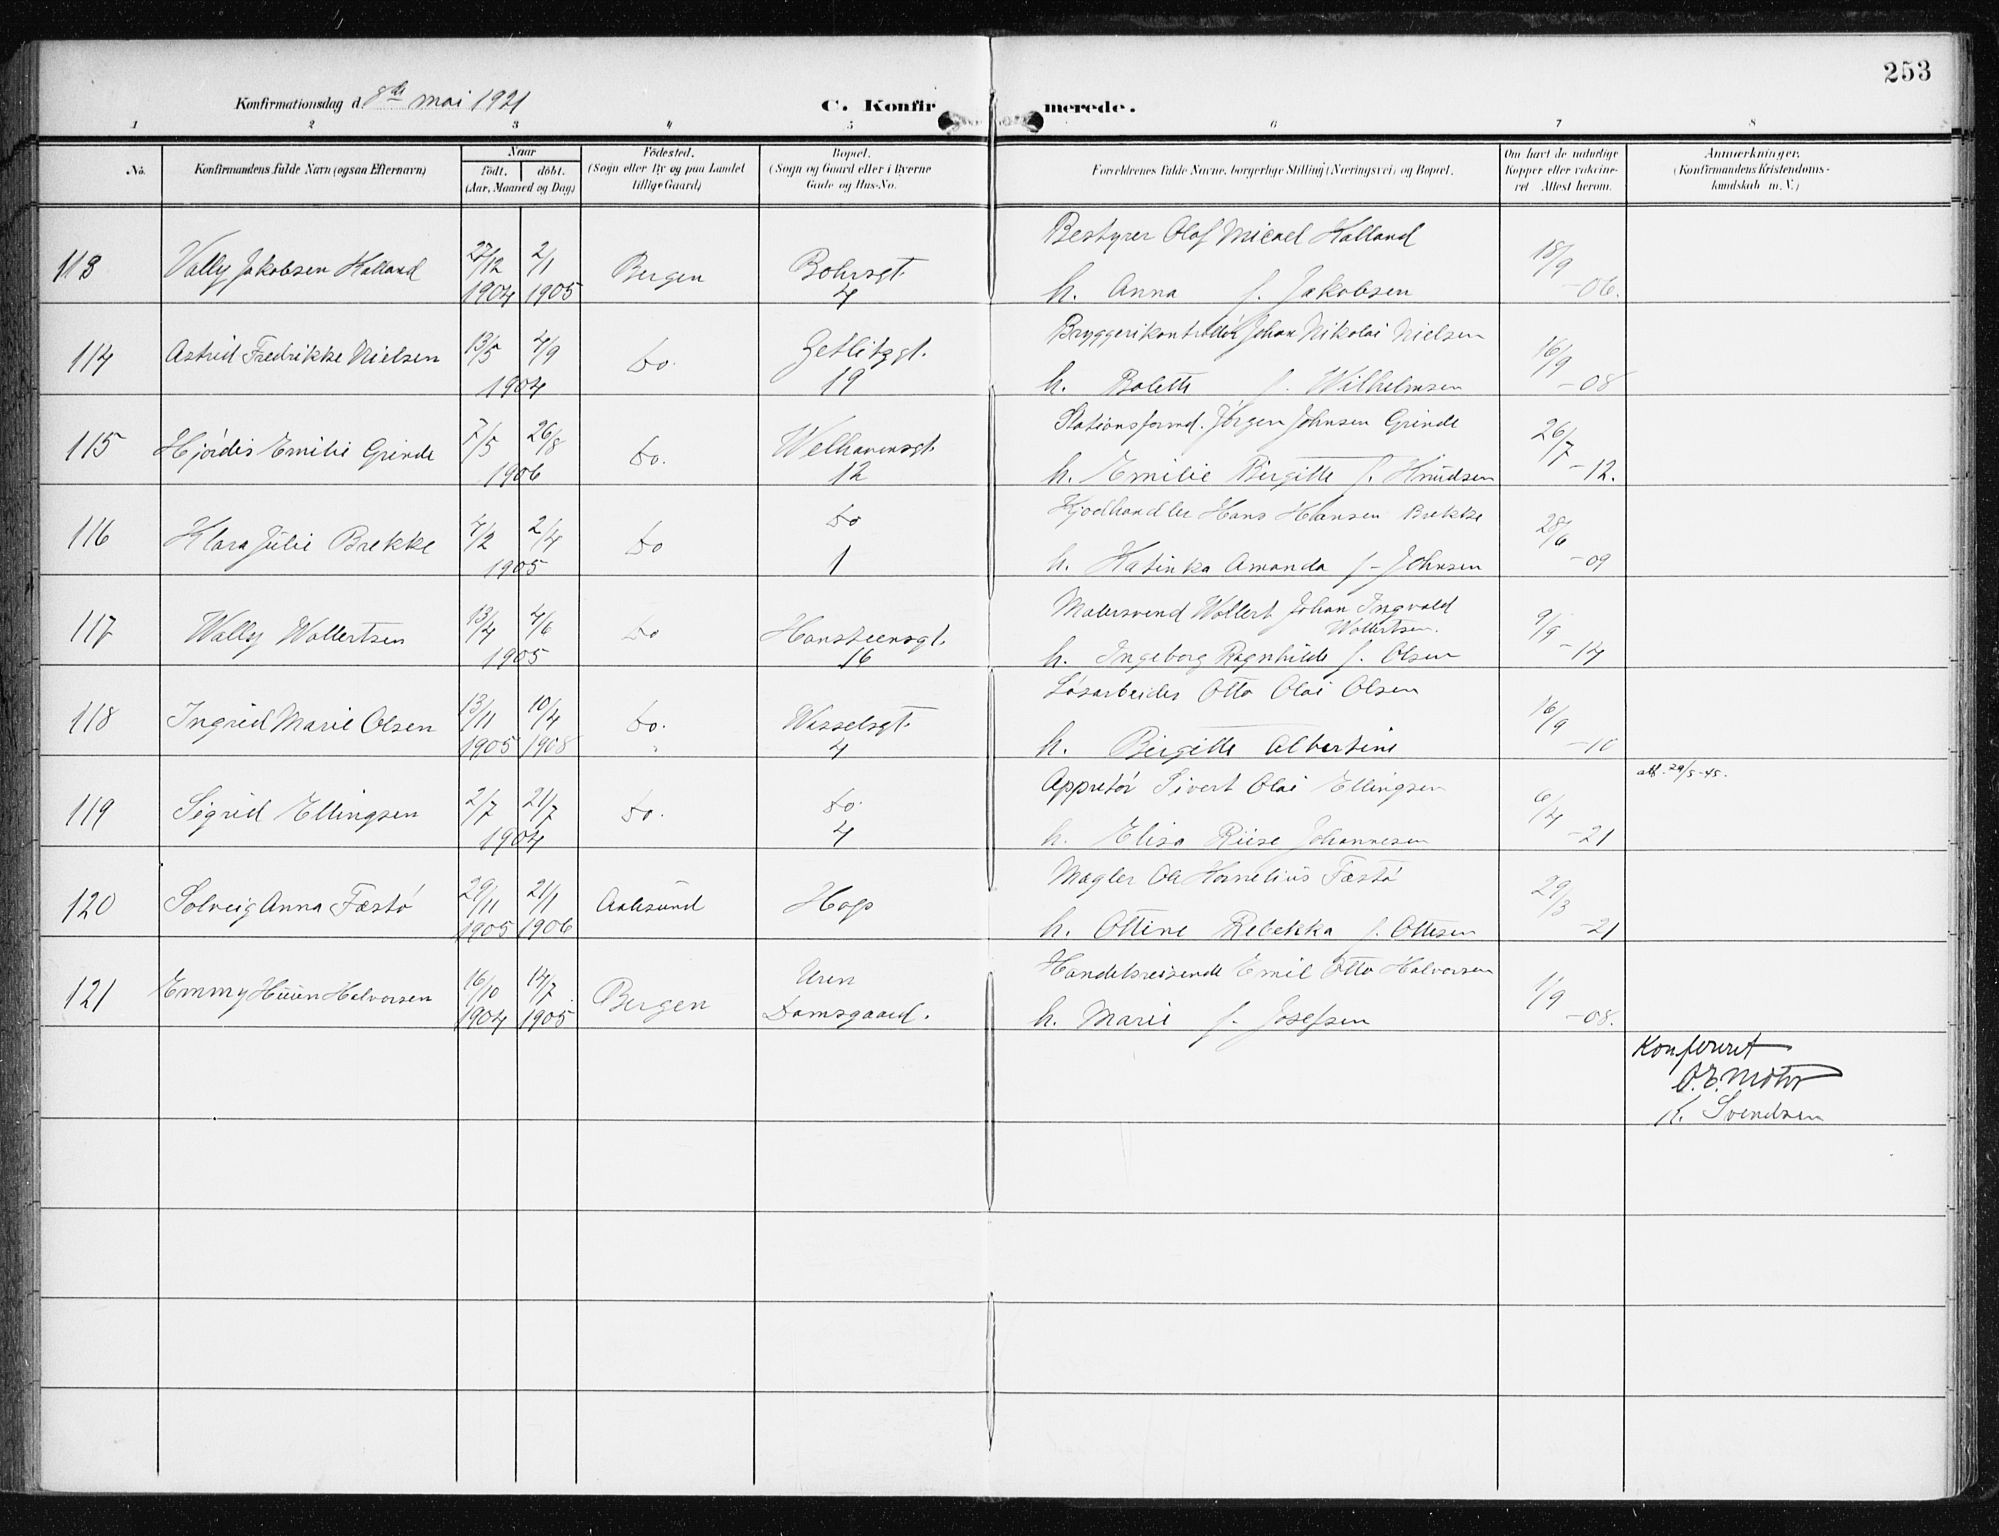 253
Konfirmationsdag d. 8de mai 1921
C. Konfirmerede.
1 2 3 4 5 6 7 8
No.
Konfirmandens fulde Navn (ogsaa Efternavn)
Naar
født. døbt.
(Aar, Maaned og Dag)
Fødested.
(Sogn eller By og paa Landet
tillige Gaard)
Bopæl.
(Sogn og Gaard eller i Byerne
Gade og Hus-No.
Forældrenes fulde Navne, borgerlige Stilling (Næringsvei) og Bopæl.
Om havt de naturlige
Kopper eller vakcineret
Attest herom.
Anmærkninger.
(Konfirmandens Kristendomskundskab
m. V.)
113 Vally Jakobsen Halland 27/12 1904 2/1 1905 Bergen Bohrsgt. 4
Bestyrer Olaf Micael Halland
h. Anna f. Jakobsen 18/9 -06.
114 Astrid Fredrikke Nielsen 13/5 4/9 1904 Do. Getlitzgt. 19
Bryggerikontrollør Johan Nikolai Nielsen
h. Bolette f. Wilhelmsen 16/9 -08
115 Hjørdis Emilie Grinde 7/5 26/8 1906 Do. Welhavensgt. 12
Stationsformd. Jørgen Johnsen Grinde
h. Emilie Birgitte f. Knudsen 26/7 -12.
116 Klara Julie Brekke 4/2 2/4 1905 Do Do 1
Kjødhandler Hans Hansen Brekke
h. Katinka Amanda f- Johnsen 28/6 -09
117 Wally Wollertsen 13/4 4/6 1905 Do Hansteensgt. 16
Malersvend Wollert Johan Ingvald
Wollertsen.
h. Ingeborg Ragnhilde f. Olsen 9/9 -14
118 Ingrid Marie Olsen 13/11 1905 10/4 1908 Do. Wesselsgt. 4
Løsarbeider Otto Olai Olsen
h. Birgitte Albertine 16/9 -10
119 Sigrid Ellingsen 2/7 21/7 1904 Do. Do. 4
Appretør Sivert Olai Ellingsen
h. Elisa Riise Johannesen 6/4 -21
att. 29/5-45.
120 Solveig Anna Fæstø 29/11 1905 21/1 1906 Aalesund Hop
Mægler Ole Kornelius Fæstø
h. Ottine Rebekka f. Ottesen 29/3 -21
121 Emmy Huun Halvorsen 16/10 1904 14/7 1905 Bergen Uren
Damsgaard.
Handelsreisende Emil Otto Halvorsen
h. Marie f. Josefsen 1/9 -08.
Konfereret
O.E. Mohr
K. Svendsen